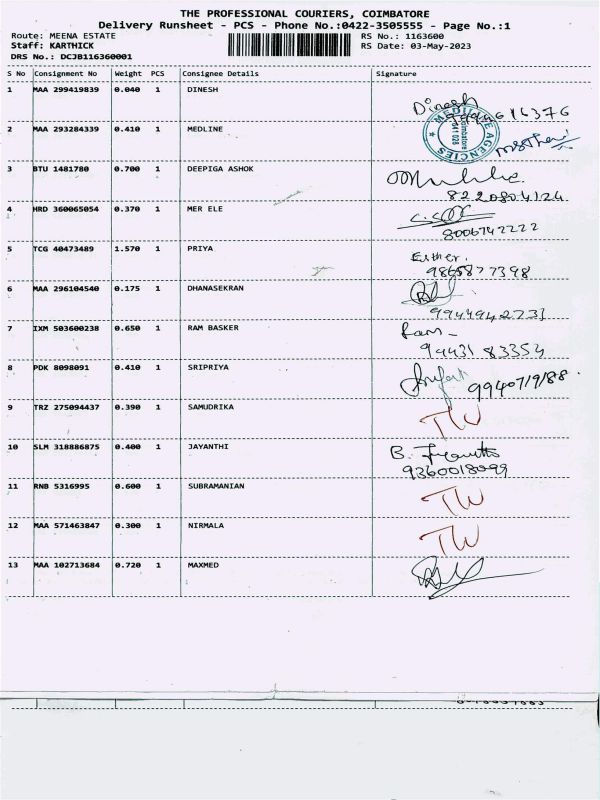 THE PROFESSIONAL COURIERS, COIMBATORE
Delivery Runsheet - PCS - Phone No.:0422-3505555 - Page No.:1
Route: MEENA ESTATE RS No.: 1163600
Staff: KARTHICK RS Date: 03-May-2023
DRS No.: DCJB116360001
S No Consignment No Weight PCS Consignee Details Signature
1 MAA 299419839 0.040 1 DINESH Dinesh
2 MAA 293284339 0.410 1 MEDLINE AGENCIES Coimbatore 641 028
3 BTU 1481780 0.700 1 DEEPIGA ASHOK
8220804124
4 HRD 360065054 0.370 1 MER ELE
8006742222
5 TCG 40473489 1.570 1 PRIYA Esther.
9865877398
6 MAA 296104540 0.175 1 DHANASEKRAN
9944942731
7 IXM 503600238 0.650 1 RAM BASKER Ram
94431 83354
8 PDK 8098091 0.410 1 SRIPRIYA
9940719188.
9 TRZ 275094437 0.390 1 SAMUDRIKA TW
10 SLM 318886875 0.400 1 JAYANTHI B. Jayanthi
9360018099
11 RNB 5316995 0.600 1 SUBRAMANIAN TW
12 MAA 571463847 0.300 1 NIRMALA TW
13 MAA 102713684 0.720 1 MAXMED